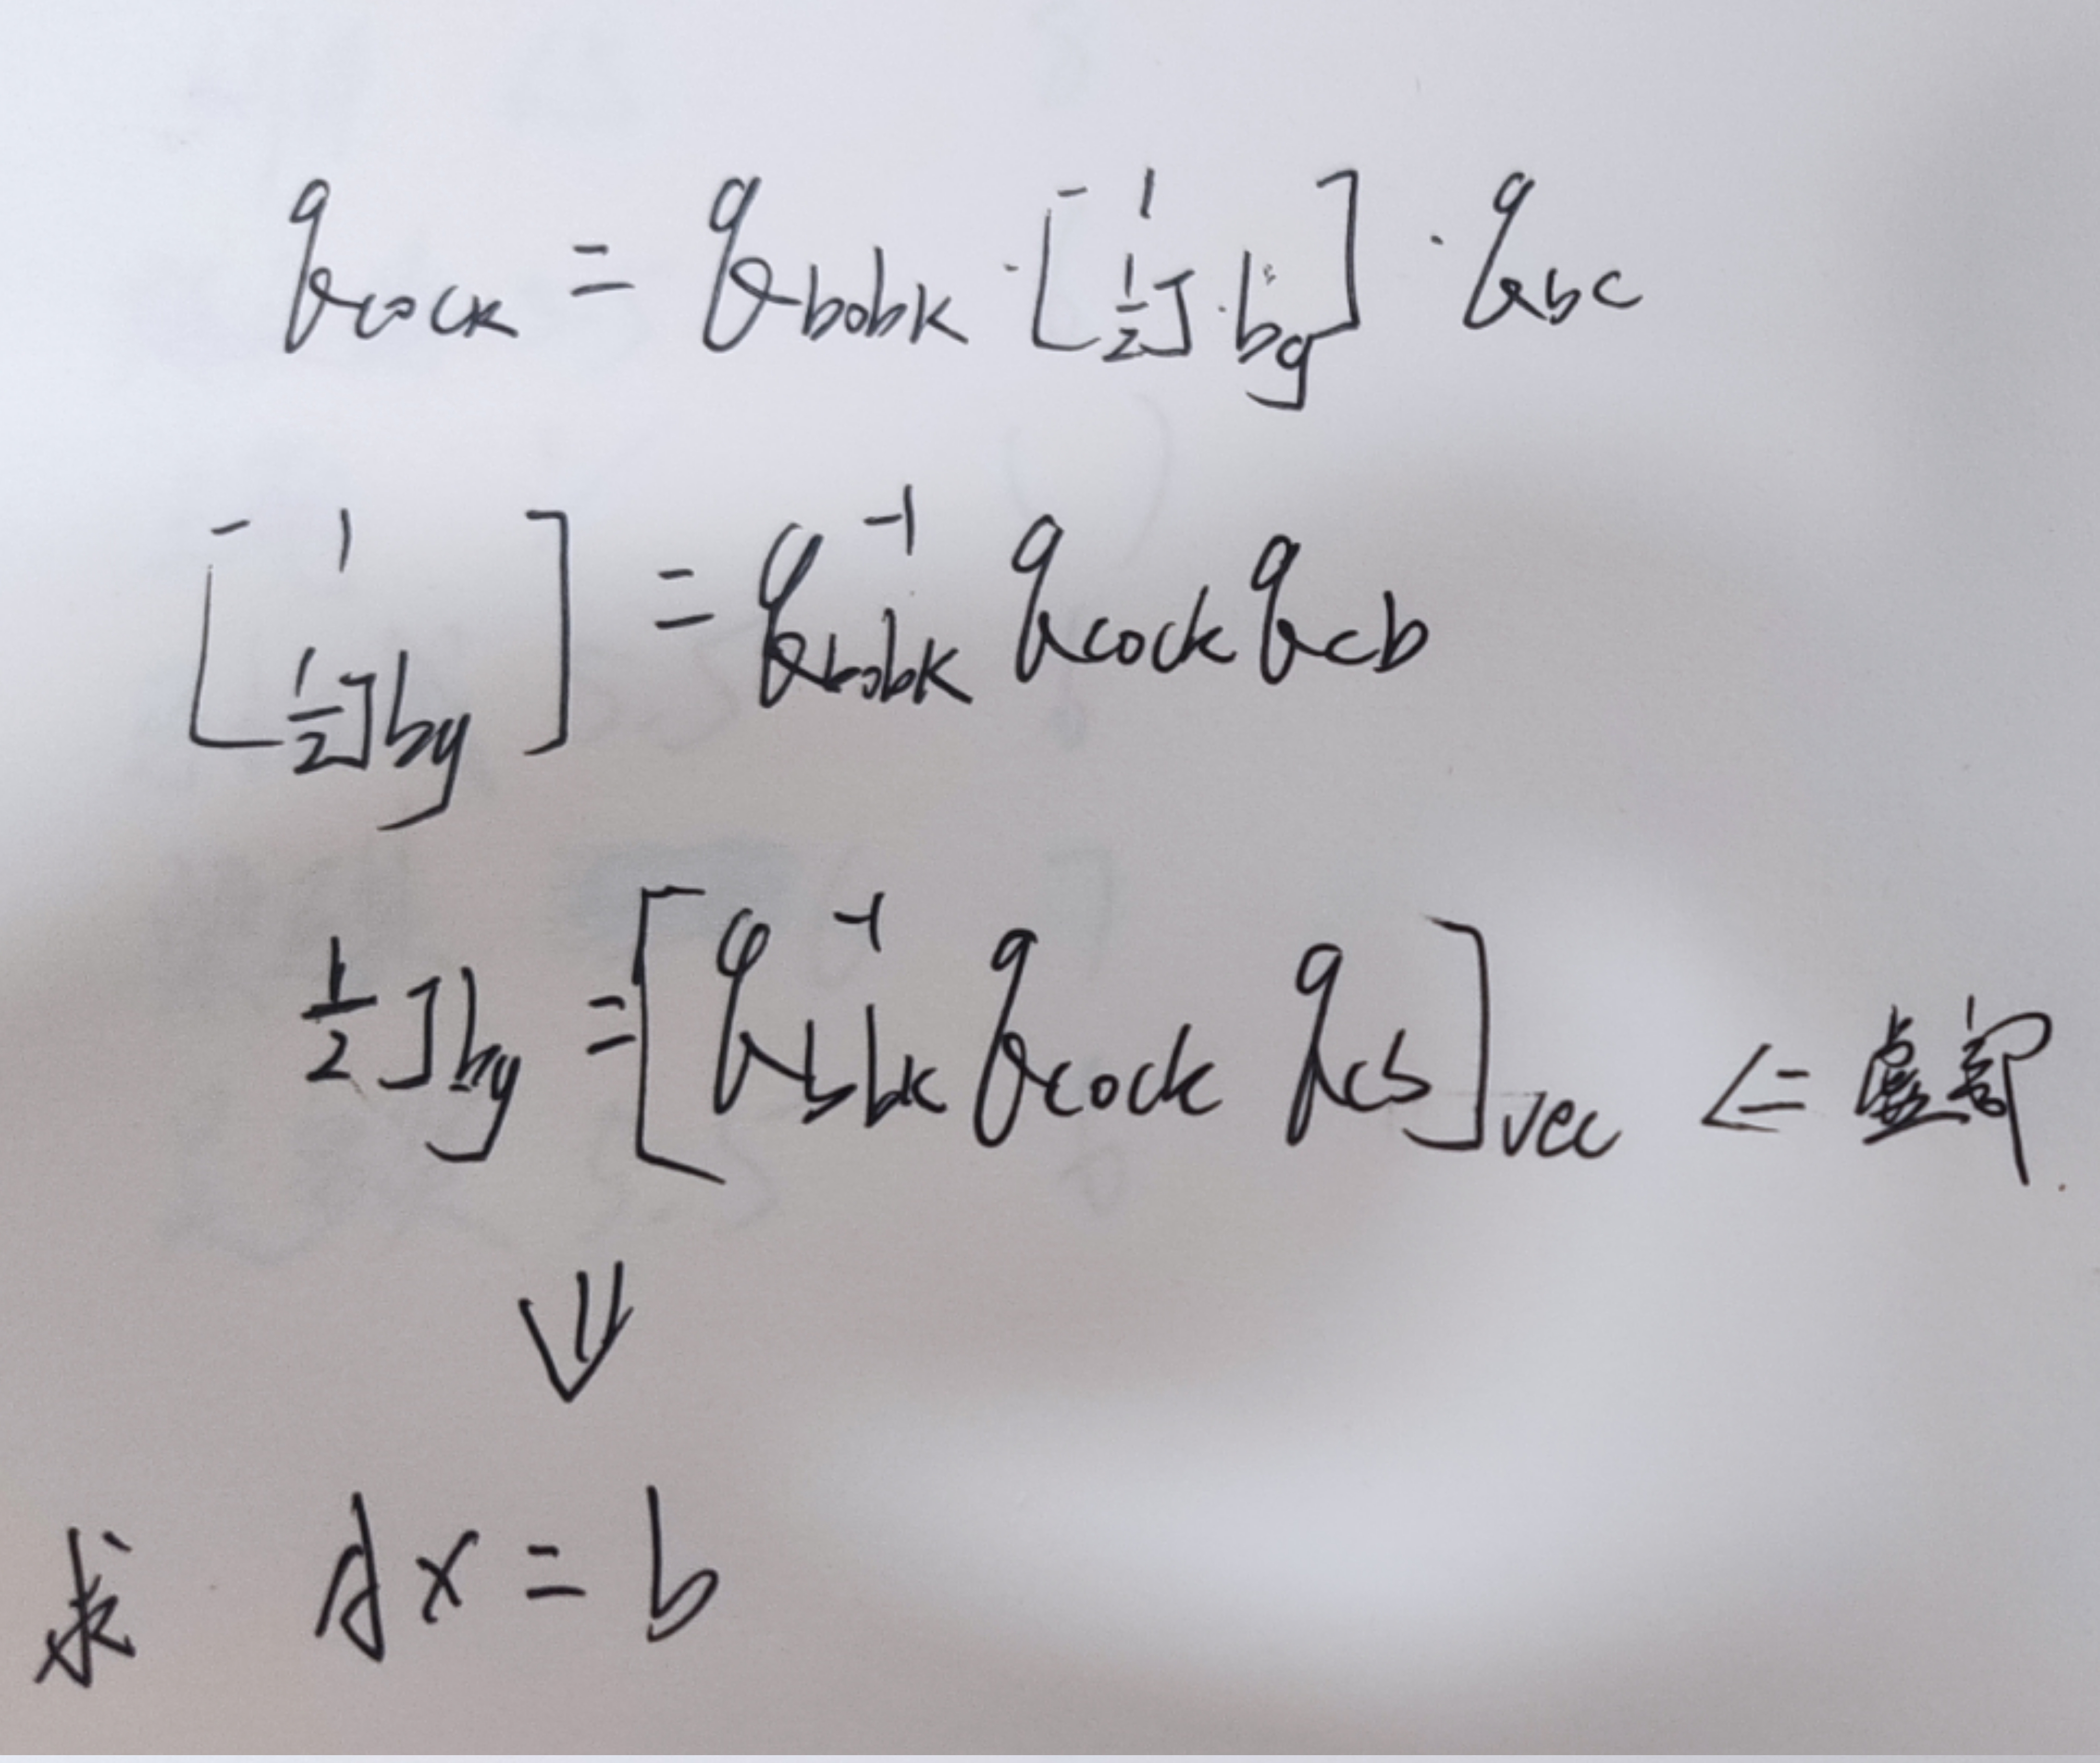 q_{cock} = q_{bobk} · [ 1 ; 1/2 J · bg ] · q_{bc}
[ 1 ; 1/2 J bg ] = q_{bobk}^{-1} q_{cock} q_{cb}
1/2 J bg = [ q_{bbk}^{-1} q_{cock} q_{cb} ]_{vec} ⇐ 虚部
⇓
求 Ax = b